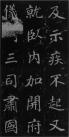 及示疾不起又
就臥內加開府
儀同三司肅國